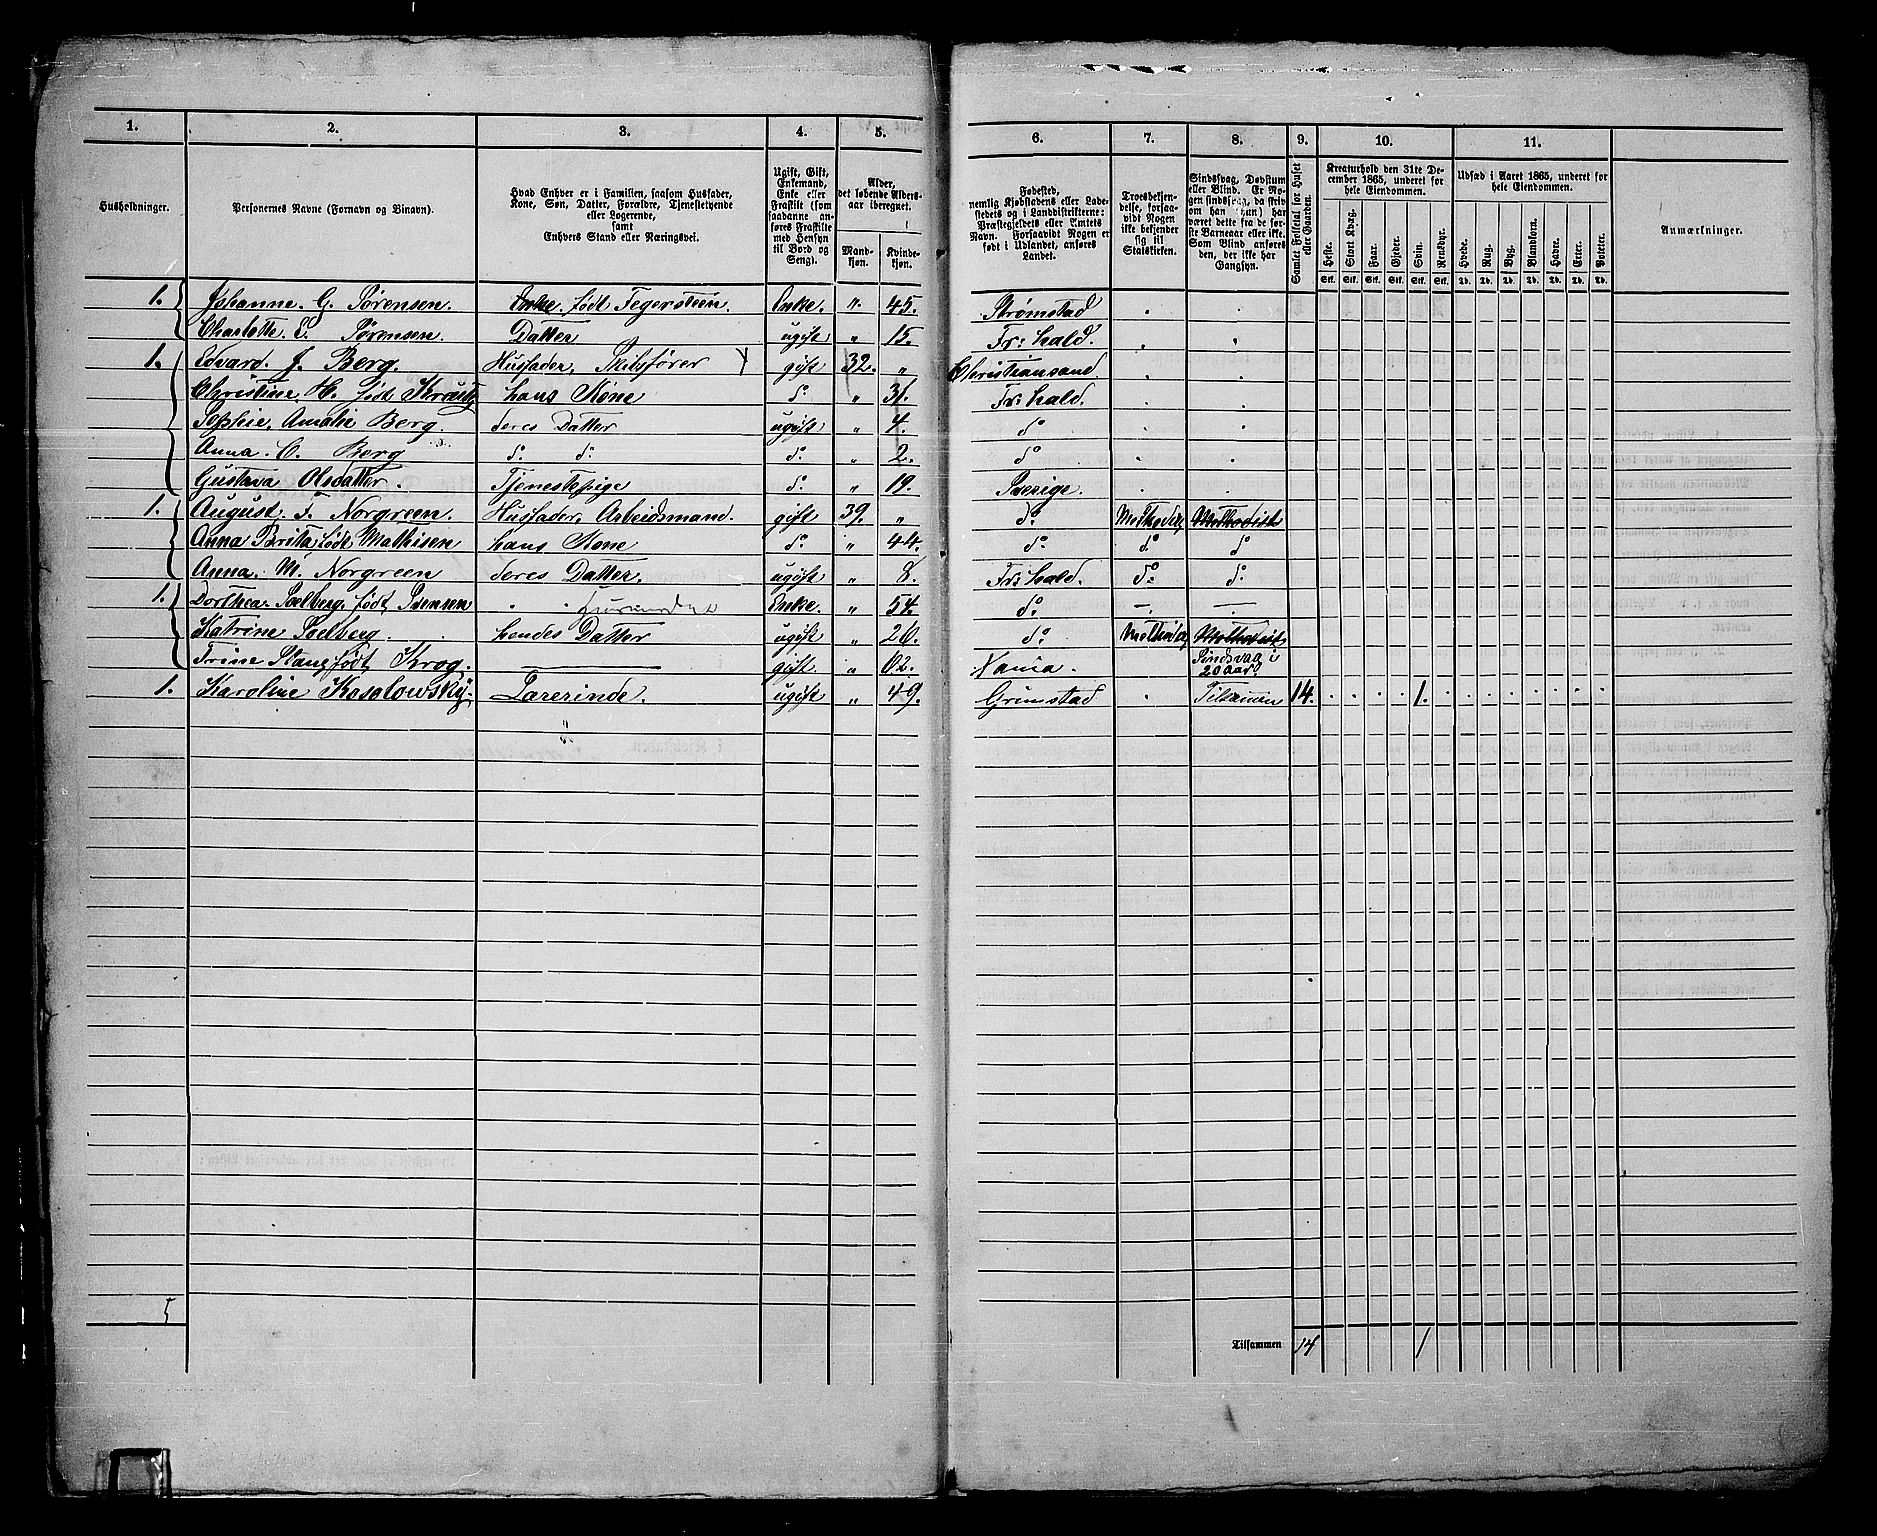 1. 2. 3. 4. 5. 6. 7. 8. 9. 10. 11.
Husholdninger.
Personernes Navne (Fornavn og Binavn).
Hvad Enhver er i Familien, saasom Husfader,
Kone, Søn, Datter, Forældre, Tjenestetyende
eller Logerende,
samt
Enhvers Stand eller Næringsvei.
Ugift, Gift,
Enkemand,
Enke eller
Fraskilt (som
saadanne an-
føres Fraskilte
med Hensyn
til Bord og
Seng).
Alder,
det løbende Alders-
aar iberegnet.
Mand-
kjøn.
Kvinde-
kjøn.
Fødested,
nemlig Kjøbstadens eller Lade-
stedets og i Landdistrikterne:
Præstegjeldets eller Amtets
Navn. Forsaavidt Nogen er
født i Udlandet, anføres
Landet.
Troesbekjen-
delse, forsaa-
vidt Nogen
ikke bekjender
sig til
Statskirken.
Sindssvag, Døvstum
eller Blind. Er No-
gen sindssvag, da skriv
om han (hun) har
været dette fra de før-
ste Barneaar eller ikke.
Som Blind anføres
den, der ikke har
Gangsyn.
Samlet Folketal for Huset
eller Gaarden.
Kreaturhold den 31te De-
cember 1865, underet for
hele Eiendommen.
Heste. Stort Kvæg. Faar. Gjeder. Svin. Rensdyr.
Stk. Stk. Stk. Stk. Stk. Stk.
Udsæd i Aaret 1865, underet for
hele Eiendommen.
Hvede. Rug. Byg. Blandkorn. Havre. Erter. Poteter.
Td. Td. Td. Td. Td. Td. Td.
Anmærkninger.
1. Johanne. G. Sørensen. Enke. født Fegersteen Enke. " 45. Strømstad
Charlotte. E. Sørensen. Datter ugift " 15. Fr: hald.
1. Edvard. J. Berg. Husfader, Skibsfører gift 32. " Christiansand
Christine. H. født hans Kone do " 31. Fr: hald.
Sophie. Amalie Berg. deres Datter ugift " 4. do
Anna. C. Berg do. do. do. " 2. do
Gustava Olsdatter. Tjenestepige do. " 19. Sverige.
1. August. F. Norgreen. Husfader, Arbeidsmand. gift 39. " do. Methodist Methodist
Anna Brita født Mathisen hans Kone do. " 44. do. do. do
Anna. M. Norgreen deres Datter. ugift " 8. Fr: hald. do: do.
1. Dorthea Solberg. født Svensen Enke. " 54. do.
Katrine Solberg. hendes Datter ugift " 26. do. Methodist Methodist
Trine Stang født Krog. gift " 62. Sindsvag i
20 Aar.
1. Karoline Kosolowsky. Lærerinde. ugift " 49. Grimstad Tilsammen 14. 1.
5
Tilsammen 14 1